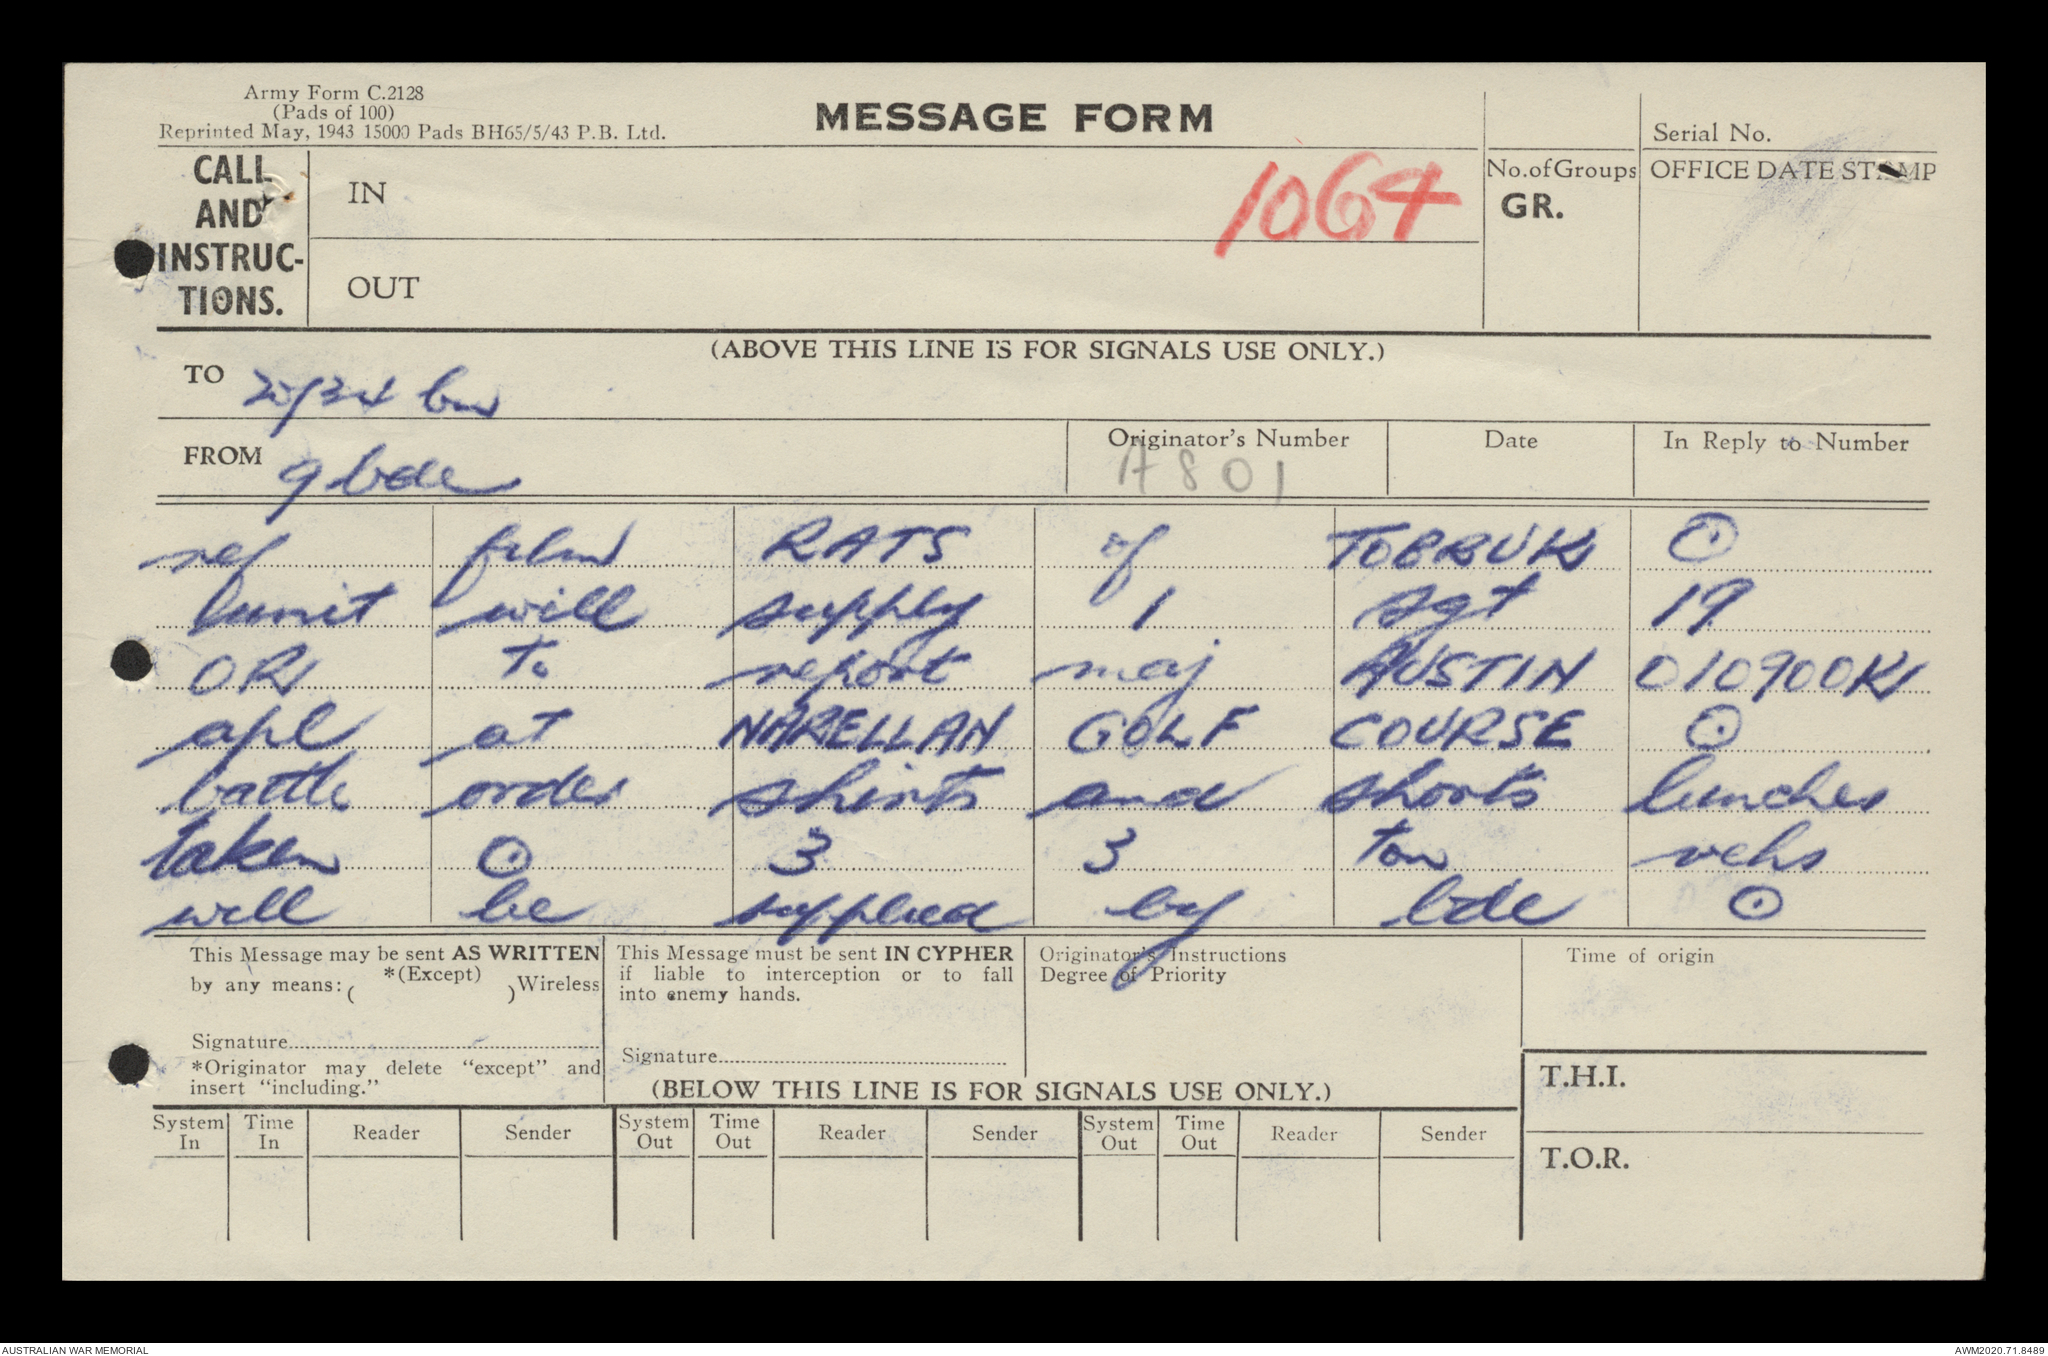 Army Form C.2128
(Pads of 100)
Reprinted May, 1943 15000 Pads BH65/5/43 P.B. Ltd.
MESSAGE FORM
Serial No.
CALL AND INSTRUC-TIONS.
IN
1064
No. of Groups
GR.
OFFICE DATE STAMP
OUT
(ABOVE THIS LINE IS FOR SIGNALS USE ONLY.)
TO 2/34 bn
FROM 9 bde
Originator's Number A801
Date
In Reply to Number
ref film RATS of TOBRUK ⊙
unit will supply 1 sgt 19
OR to report maj AUSTIN 010900K
apl at NARELLAN GOLF COURSE ⊙
battle order shirts and shorts lunches
taken ⊙ 3 3 ton vehs
will be supplied by bde ⊙
This Message may be sent AS WRITTEN
by any means: ( *(Except) ) Wireless
Signature
*Originator may delete "except" and
insert "including."
This Message must be sent IN CYPHER
if liable to interception or to fall
into enemy hands.
Signature
Originator's Instructions
Degree of Priority
Time of origin
(BELOW THIS LINE IS FOR SIGNALS USE ONLY.)
T.H.I.
System In Time In Reader Sender System Out Time Out Reader Sender System Out Time Out Reader Sender
T.O.R.
AUSTRALIAN WAR MEMORIAL
AWM2020.71.8489